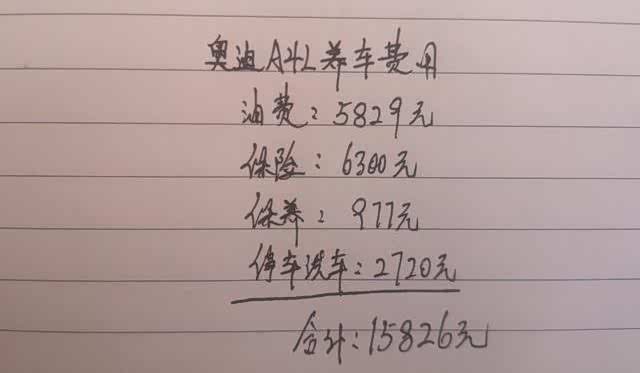 奥迪A4L养车费用
油费：5829元
保险：6300元
保养：977元
停车洗车：2720元
合计：15826元